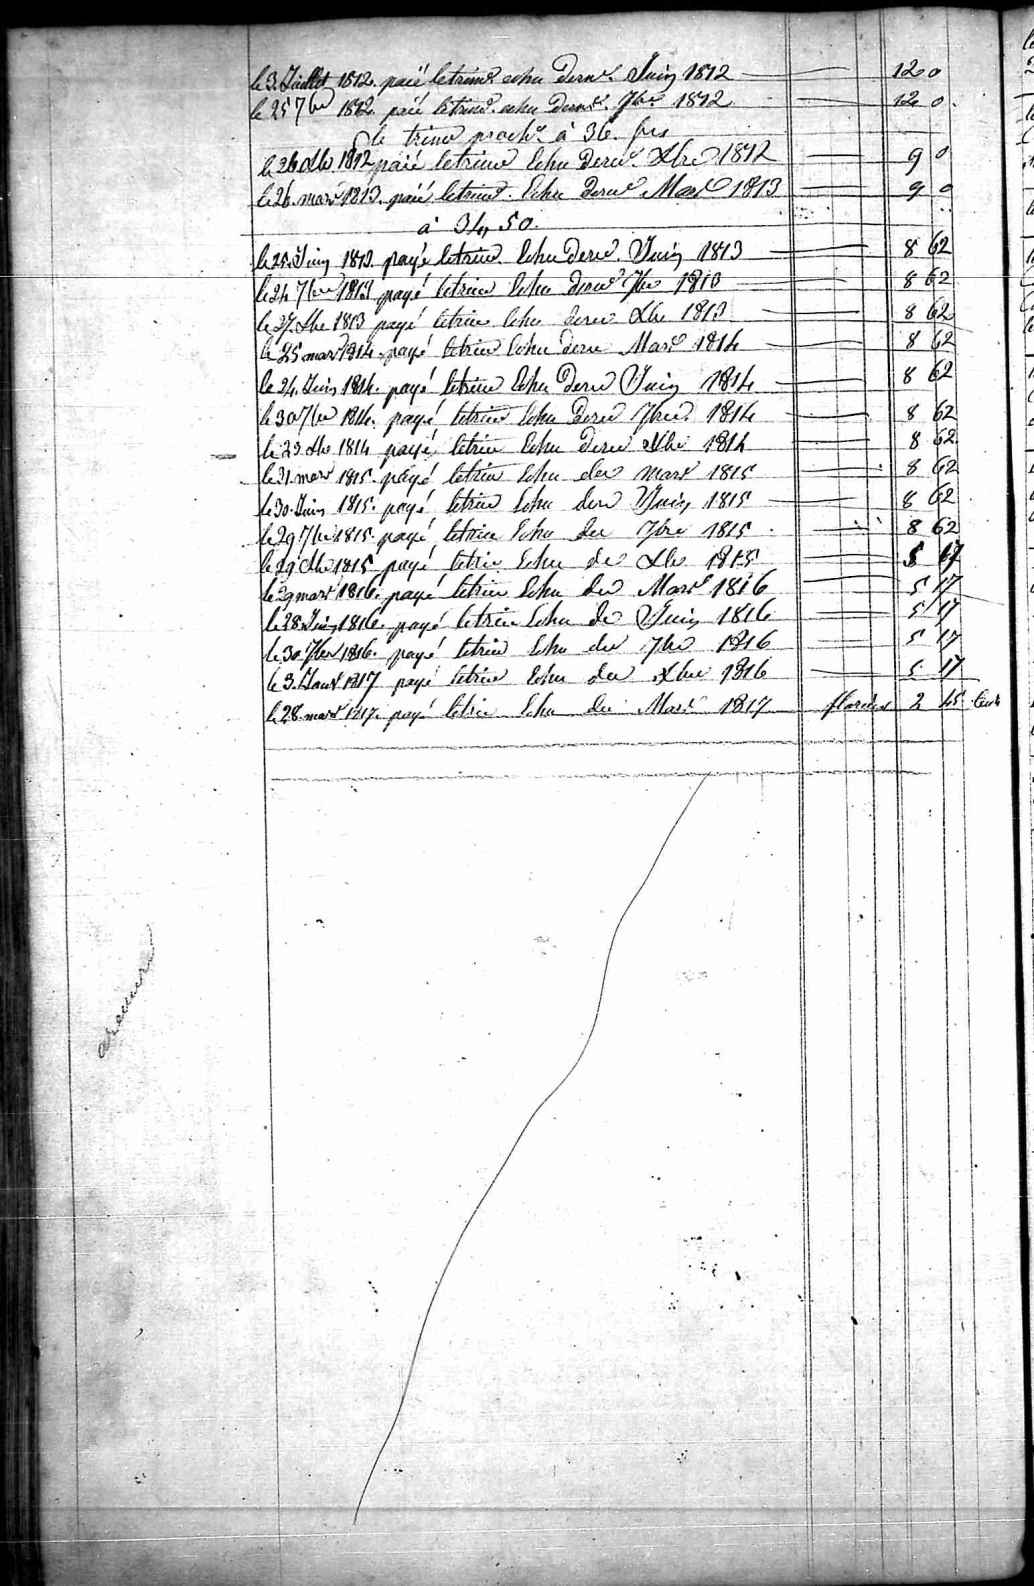 le 3. Juillet 1812. paié letrimt. echu dernr. Juin 1812 12 0
le 25 7bre 1812. paié letrimt. echu dernr. 7bre 1812 12 0
le trime prochn. à 36. frs
le 26 Xbre 1812 paié letrime Echu dernr. Xbre 1812 9 0
le 26. mars 1813. paié letrime. Echu dernr Mars 1813 9 0
à 34,50.
le 25. Juin 1813. payé letrime. Echu dernr. Juin 1813 8 62
le 24 7bre 1813 payé letrime Echu dernr 7bre 1813 8 62
le 27. Xbre 1813 payé letrime Echu dernr Xbre 1813 8 62
le 25 mars 1814. payé letrime Echu dernr Mars 1814 8 62
le 24. Juin 1814. payé letrime Echu dernr Juin 1814 8 62
le 30 7bre 1814. payé letrime Echu dernr 7bre 1814 8 62
le 23 Xbre 1814 payé letrime Echu dernr Xbre 1814 8 62
le 31. mars 1815. payé letrime Echu der mars 1815 8 62
le 30. Juin 1815. payé letrime Echu der Juin 1815 8 62
le 29 7bre 1815. payé letrime Echu der 7bre 1815 8 62
le 29 Xbre 1815 payé letrie Echu de Xbre 1815 5 17
le 29 mars 1816. payé letrim Echu der Mars 1816 5 17
le 28. Juin 1816. payé letrim Echu de Juin 1816 5 17
le 30 7bre 1816. payé letrim Echu der 7bre 1816 5 17
le 3. Janv 1817 payé letrim Echu der Xbre 1816 5 17
le 28. mars 1817. payé letrim Echu der Mars 1817 florins 2 45 Cents